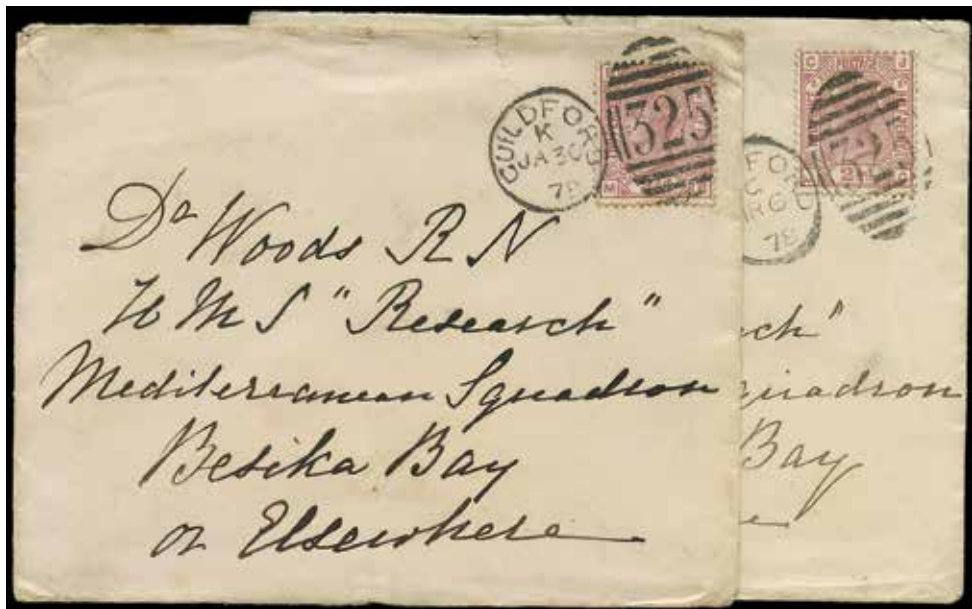 GUILDFORD
K
JA 30
78
325
M
Dr Woods R N
H M S "Research"
Mediterranean Squadron
Besika Bay
or Elsewhere
C J
78
Bay